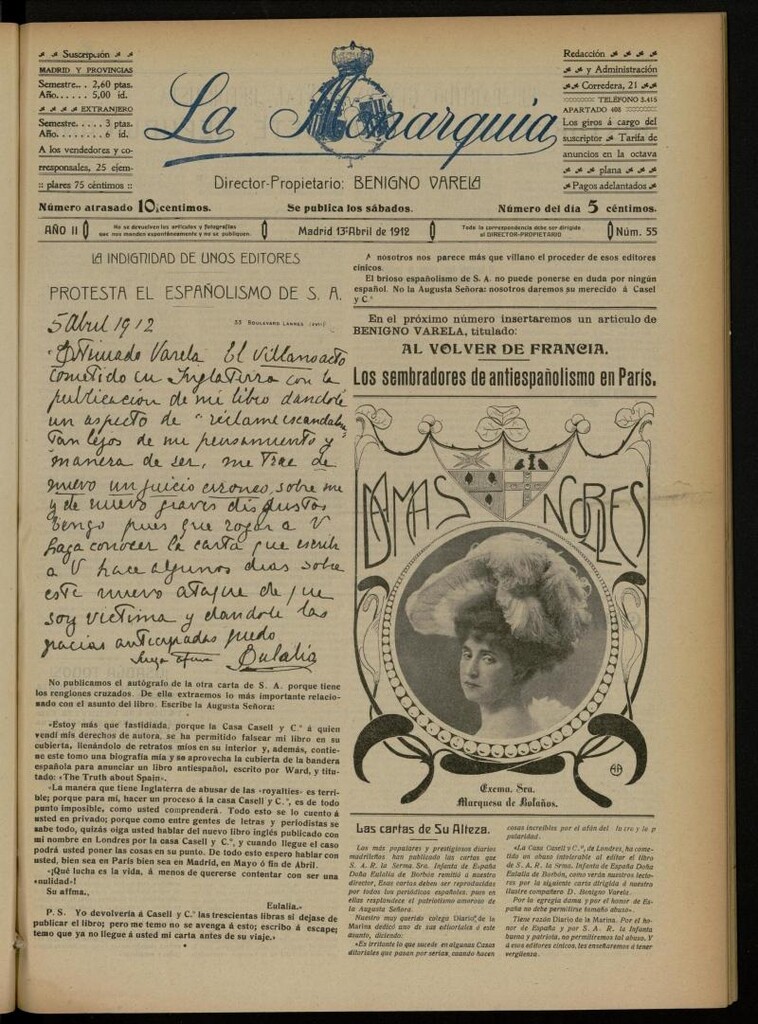 Suscripción
MADRID Y PROVINCIAS
Semestre.. 2,60 ptas.
Año...... 5,00 id.
EXTRANJERO
Semestre..... 3 ptas.
Año........ 6 id.
A los vendedores y co-
rresponsales, 25 ejem-
:: plares 75 céntimos ::
La Monarquia
Director-Propietario: BENIGNO VARELA
Redacción
y Administración
Corredera, 21
TELÉFONO 3.415
APARTADO 408
Los giros á cargo del
suscriptor Tarifa de
anuncios en la octava
plana
Pagos adelantados
Número atrasado 10 céntimos.
Se publica los sábados.
Número del día 5 céntimos.
AÑO II
No se devuelven los artículos y fotografías
que nos manden espontáneamente y no se publiquen.
Madrid 13 Abril de 1912
Toda la correspondencia debe ser dirigida
al DIRECTOR-PROPIETARIO
Núm. 55
LA INDIGNIDAD DE UNOS EDITORES
PROTESTA EL ESPAÑOLISMO DE S. A.
5 Abril 1912
33 BOULEVARD LANNES
Estimado Varela El villano acto
cometido en Inglaterra con la
publicación de mi libro dandole
un aspecto de "reclame escandalo"
tan lejos de mi pensamiento y
manera de ser, me trae de
nuevo un juicio erroneo sobre mi
y de nuevo graves disgustos
Tengo pues que rogar a V
haga conocer la carta que escribi
a V hace algunos dias sobre
este nuevo ataque de que
soy victima y dandole las
gracias anticipadas quedo
Suya afma Eulalia
No publicamos el autógrafo de la otra carta de S. A. porque tiene
los renglones cruzados. De ella extraemos lo más importante relacio-
nado con el asunto del libro. Escribe la Augusta Señora:
«Estoy más que fastidiada, porque la Casa Casell y C.ª á quien
vendí mis derechos de autora, se ha permitido falsear mi libro en su
cubierta, llenándolo de retratos míos en su interior y, además, contie-
ne este tomo una biografía mía y se aprovecha la cubierta de la bandera
española para anunciar un libro antiespañol, escrito por Ward, y titu-
tado: «The Truth about Spain».
«La manera que tiene Inglaterra de abusar de las «royalties» es terri-
ble; porque para mí, hacer un proceso á la casa Casell y C.ª, es de todo
punto imposible, como usted comprenderá. Todo esto se lo cuento á
usted en privado; porque como entre gentes de letras y periodistas se
sabe todo, quizás oiga usted hablar del nuevo libro inglés publicado con
mi nombre en Londres por la casa Casell y C.ª, y cuando llegue el caso
podrá usted poner las cosas en su punto. De todo esto espero hablar con
usted, bien sea en París bien sea en Madrid, en Mayo ó fin de Abril.
¡Qué lucha es la vida, á menos de quererse contentar con ser una
«nulidad»!
Su affma.,
Eulalia.»
P. S. Yo devolvería á Casell y C.ª las trescientas libras si dejase de
publicar el libro; pero me temo no se avenga á esto; escribo á escape;
temo que ya no llegue á usted mi carta antes de su viaje.»
A nosotros nos parece más que villano el proceder de esos editores
cínicos.
El brioso españolismo de S. A. no puede ponerse en duda por ningún
español. No la Augusta Señora: nosotros daremos su merecido á Casel
y C.ª
En el próximo número insertaremos un artículo de
BENIGNO VARELA, titulado:
AL VOLVER DE FRANCIA.
Los sembradores de antiespañolismo en París.
DAMAS NOBLES
AR
Excma. Sra.
Marquesa de Bolaños.
Las cartas de Su Alteza.
Los más populares y prestigiosos diarios
madrileños han publicado las cartas que
S. A. R. la Serma. Sra. Infanta de España
Doña Eulalia de Borbón remitió a nuestro
director. Esas cartas deben ser reproducidas
por todos los periódicos españoles, pues en
ellas resplandece el patriotismo amoroso de
la Augusta Señora.
Nuestro muy querido colega Diario de la
Marina dedicó uno de sus editoriales á este
asunto, diciendo:
«Es irritante lo que sucede en algunas Casas
ditoriales que pasan por serias, cuando hacen
cosas increíbles por el afán del lucro y la p
pularidad.
«La Casa Casell y C.ª, de Londres, ha come-
tido un abuso intolerable al editar el libro
de S. A. R. la Serma. Infanta de España Doña
Eulalia de Borbón, como verán nuestros lec-
tores por la siguiente carta dirigida á nuestro
ilustre compañero D. Benigno Varela.
Por la egregia dama y por el honor de Es-
paña no debe permitirse tamaño abuso».
Tiene razón Diario de la Marina. Por el ho-
nor de España y por S. A. R. la Infanta
buena y patriota, no permitiremos tal abuso. Y
á esos editores cínicos, les enseñaremos á tener
vergüenza.